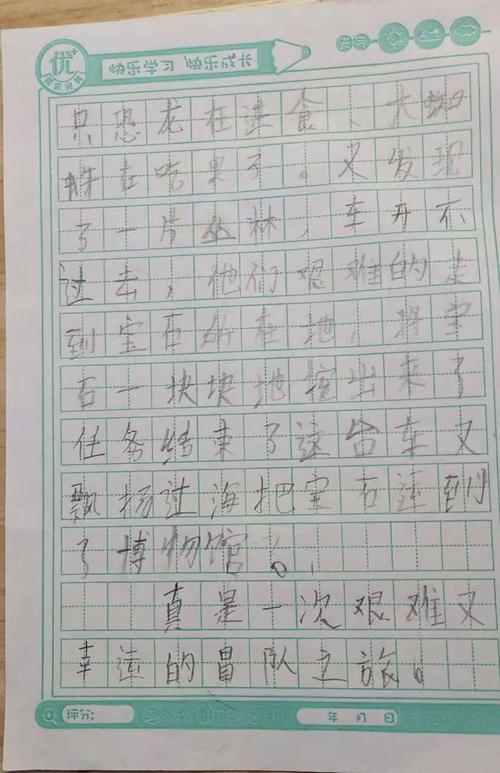 优+
快乐学习 快乐成长
天气
只恐龙在进食、大蜘
蛛在吃果子。又发现
了一片丛林，车开不
过去，他们艰难的走
到宝石所在地，将宝
石一块块地挖出来了
任务结束了这台车又
飘扬过海把宝石运到
了博物馆。
真是一次艰难又
幸运的冒队之旅。
评分：
年 月 日